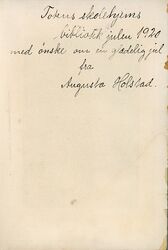 Totens skolehjems
bibliotek julen 1920
med ønske om en glædelig jul
fra
Augusta Holstad.